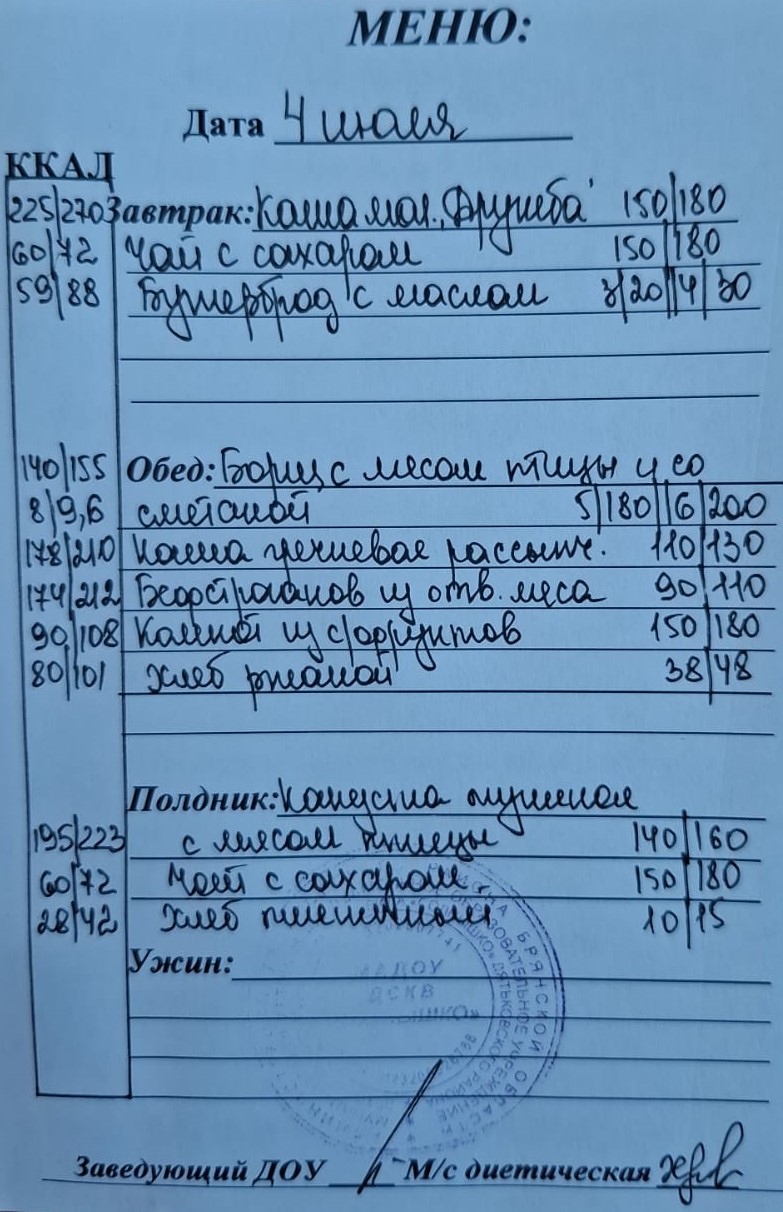 МЕНЮ:
Дата 4 июля
ККАЛ
225/270 Завтрак: Каша мол. "Дружба" 150/180
60/72 Чай с сахаром 150/180
59/88 Бутерброд с маслом 3/20//4/30
140/155 Обед: Борщ с мясом птицы и со
8/9,6 сметаной 5/180//6/200
178/210 Каша гречневая рассыпч. 110/130
174/212 Бефстроганов из отв. мяса 90/110
90/108 Компот из с/фруктов 150/180
80/101 Хлеб ржаной 38/48
Полдник: Капуста тушеная
195/223 с мясом птицы 140/160
60/72 Чай с сахаром 150/180
28/42 Хлеб пшеничный 10/15
Ужин:
БРЯНСКОЙ ОБЛАСТИ
ОБРАЗОВАТЕЛЬНОЕ УЧРЕЖДЕНИЕ
ДЯТЬКОВСКОГО РАЙОНА
Заведующий ДОУ М/с диетическая